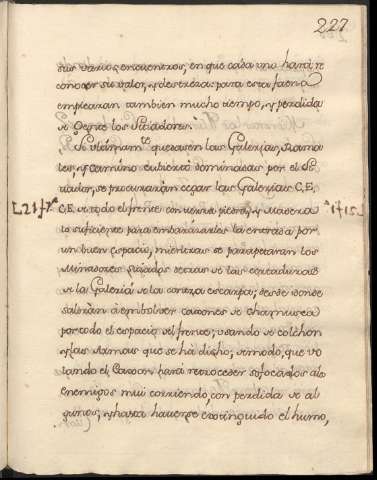 227
sus varios encuentros, en que cada uno hará re
conocer su valor, y destreza: para esta faena
emplearan tambien mucho tiempo, y perdida
de Gente los Sitiadores.
Si ultimam.te quedasen las Galerias, Rama
les, y Camino cubierto dominadas por el Si
tiador, se procurarán cegar las Galerias C.E.
C.E. de todo el frente con tierra piedra, y Madera
lo suficiente para embarazarles la entrada por
un buen espacio, mientras se parapetaran los
Minadores detras de las cortaduras
de la Galeria de la contra escarpa; desde donde
saldrán á embolver cajones de chamusca
por todo el espacio del frente; usando de colchon
y las damas que se há dicho; de modo, que vo
lando el Cajon hará retroceder sofocados alos
enemigos mui corriendo, con perdida de al
gunos; y hasta haverse extinguido el humo,